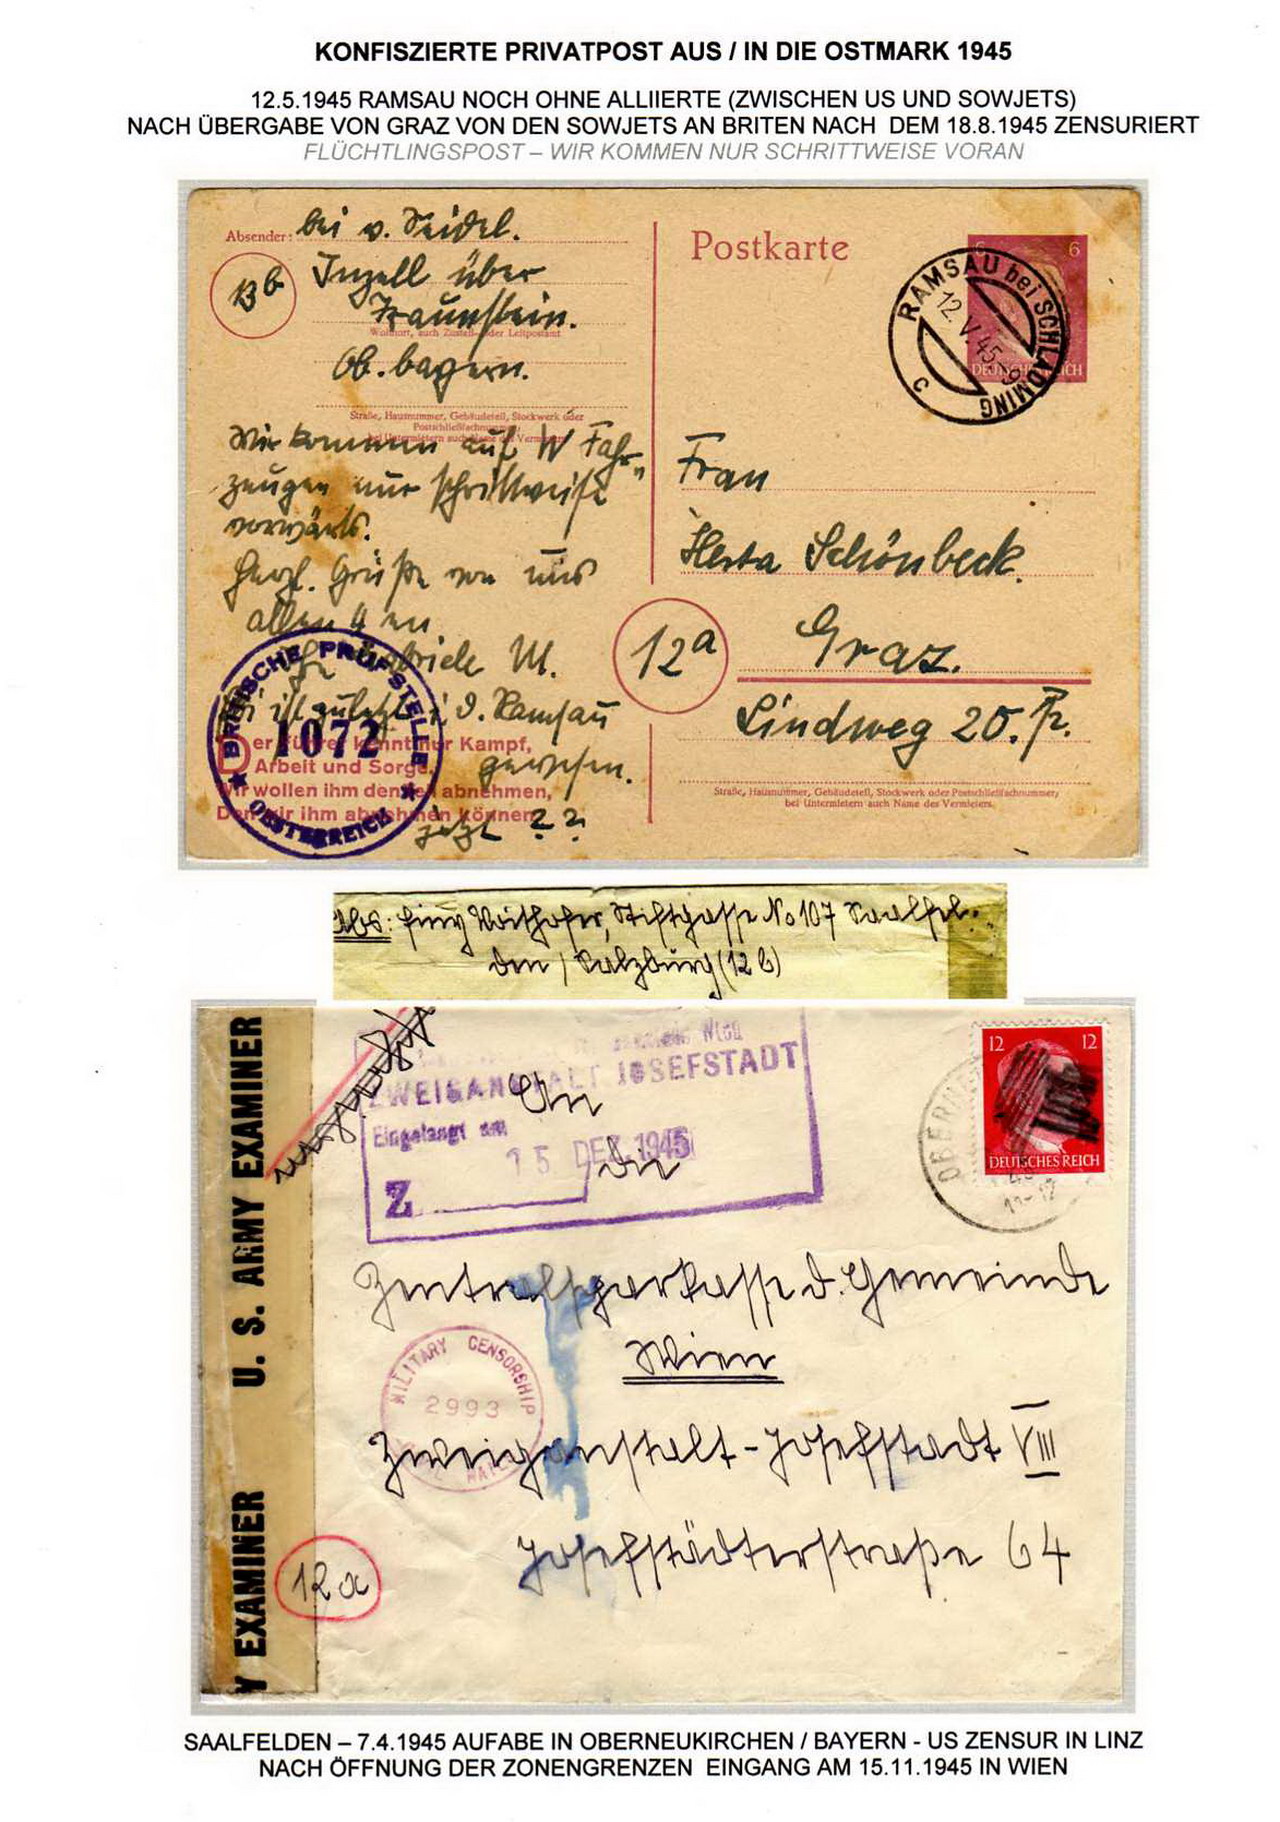 KONFISZIERTE PRIVATPOST AUS / IN DIE OSTMARK 1945
12.5.1945 RAMSAU NOCH OHNE ALLIIERTE (ZWISCHEN US UND SOWJETS)
NACH ÜBERGABE VON GRAZ VON DEN SOWJETS AN BRITEN NACH DEM 18.8.1945 ZENSURIERT
FLÜCHTLINGSPOST – WIR KOMMEN NUR SCHRITTWEISE VORAN
Absender: bei v. Seidel.
13b Inzell über
Traunstein.
Wohnort, auch Zustell- oder Leitpostamt
Ob. bayern.
Straße, Hausnummer, Gebäudeteil, Stockwerk oder
Postschließfachnummer,
bei Untermietern auch Name des Vermieters
Wir kommen auf W Fahr-
zeugen nur schrittweise
vorwärts.
Herzl. Grüße von uns
allen 4 en
M.
i. d. Ramsau
gewesen.
jetzt ? ?
BRITISCHE PRÜFSTELLE
1072
OESTERREICH
Der Führer kennt nur Kampf,
Arbeit und Sorge.
Wir wollen ihm den Teil abnehmen,
Den wir ihm abnehmen können.
Postkarte
6 6
DEUTSCHES REICH
RAMSAU bei SCHLADMING
12.V.45
c
Frau
Herta Schönbeck.
12a Graz.
Lindweg 20. P.
Straße, Hausnummer, Gebäudeteil, Stockwerk oder Postschließfachnummer;
bei Untermietern auch Name des Vermieters.
Abs: Finy Voithofer, Stiftgasse No 107 Saalfel-
den / Salzburg (12 b)
U. S. ARMY EXAMINER
Y EXAMINER
Wien
ZWEIGANSTALT JOSEFSTADT
Eingelangt am
15 DEZ. 1945
Z
12 12
DEUTSCHES REICH
OBERN
11-12
An
die
Zentralsparkasse d. Gemeinde
Wien
MILITARY CENSORSHIP
2993
MAILS
Zweiganstalt-Josefstadt VIII
Josefstädterstraße 64
12a
SAALFELDEN – 7.4.1945 AUFABE IN OBERNEUKIRCHEN / BAYERN - US ZENSUR IN LINZ
NACH ÖFFNUNG DER ZONENGRENZEN EINGANG AM 15.11.1945 IN WIEN